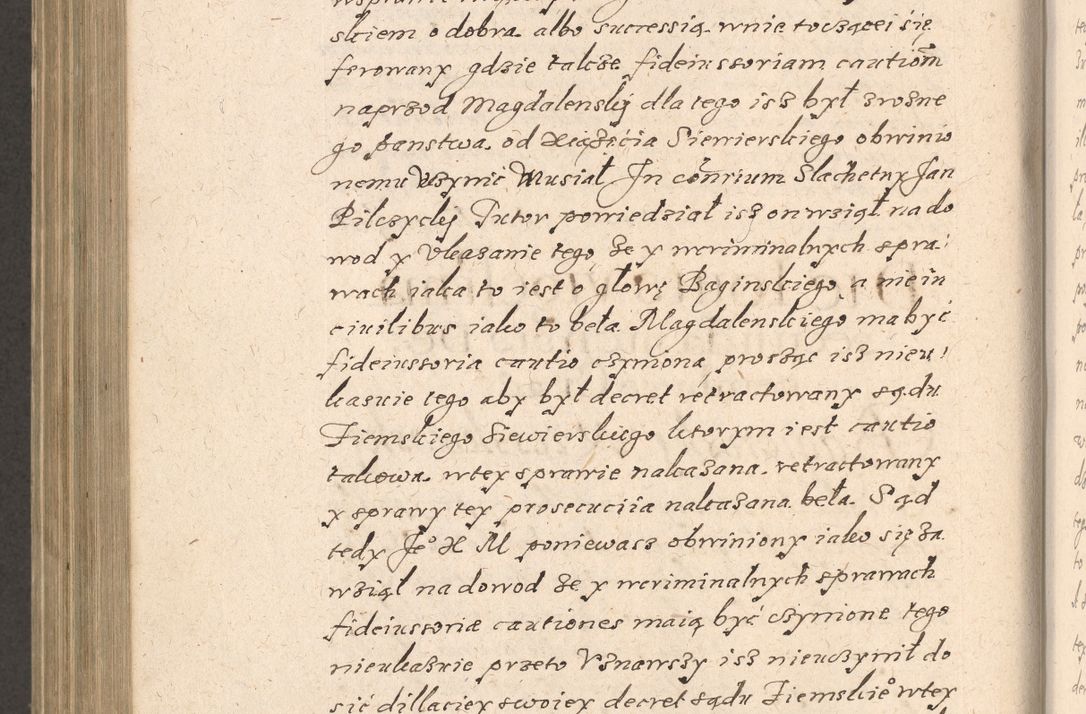 skiem o dobra albo successią wnie toczącei się
ferowany gdzie takze fideiussoriam cautiom
naprzod Magdalenskÿ dla tego isz był zrozne
go panstwa od Xiążęcia Siewierskiego obwinio
nemu Uczynić Musiał In conrium Slachetny Jan
Pilczyckÿ Tutor powiedział isz on wziął na do
wod y Ukazanie tego ze y wcriminalnych spra
wach iaka to iest o głowę Baginskiego a nie in
ciuilibus iako to beła Magdalenskiego ma być
fideiussoria cautio czyniona prosząc isz nieu
kazuie tego aby był decret retractowany sądu
Ziemskiego Siewierskiego ktorym iest cautio
takowa wtey sprawie nakazana retractowany
y sprawy tey prosecuciia nakazana beła Sąd
tedy Jeº X M poniewasz obwiniony iako się za
wziął na dowod ze y wcriminalnych sprawach
fideiussoriæ cautiones maią być czynione tego
nieukazuie przeto Uznawszy isz nieuczynił do
sić dillaciey swoiey decret sądu Ziemskieº wtey